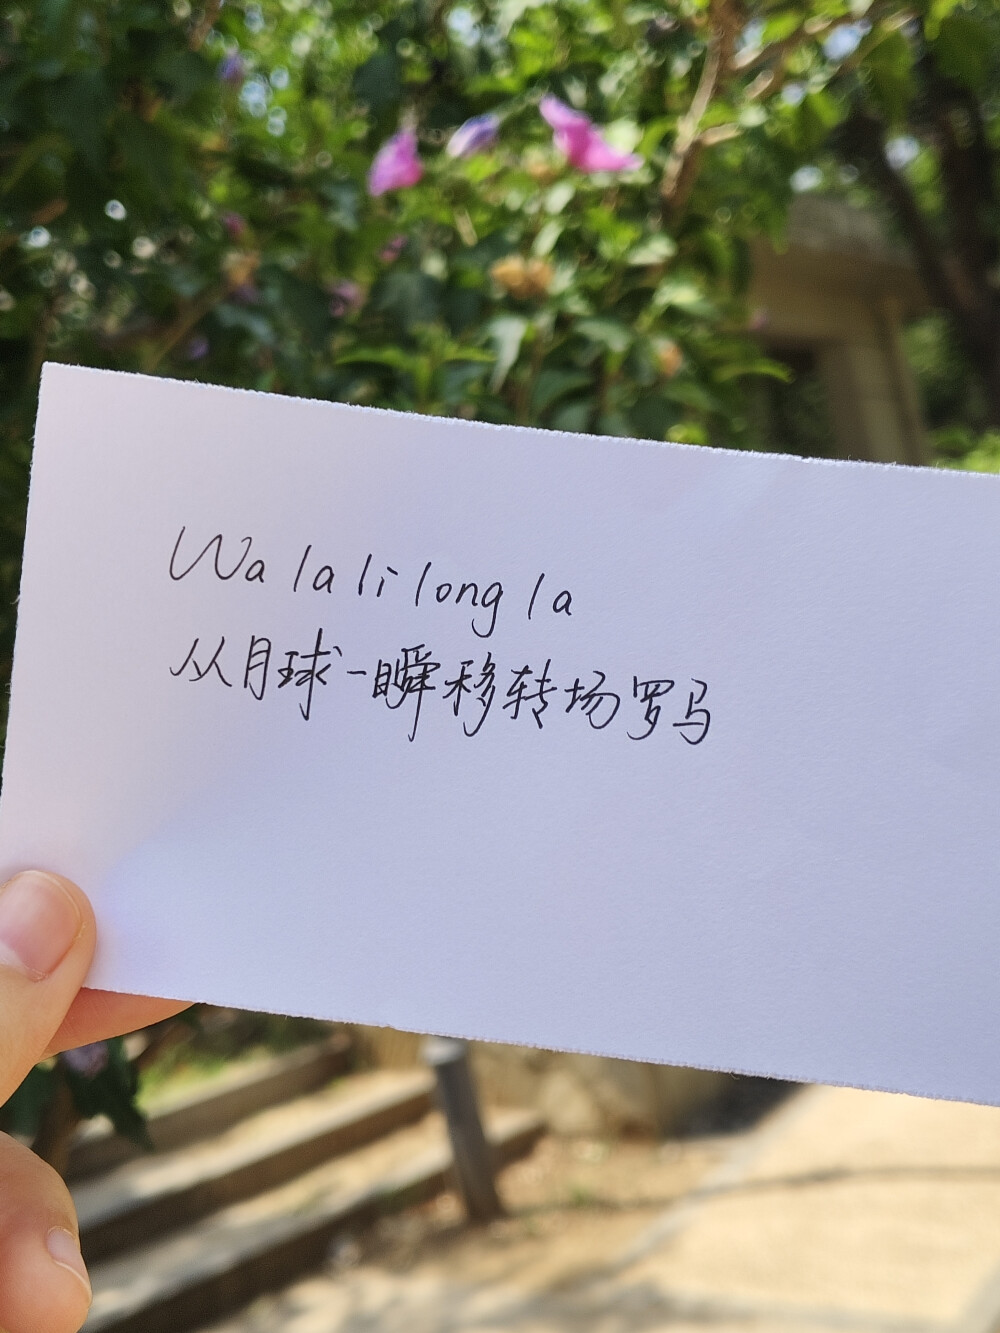 Wa la li long la
从月球一瞬移转场罗马